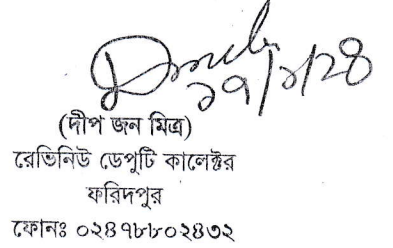 ১৭/১/২৪
(দীপ জন মিত্র)
রেভিনিউ ডেপুটি কালেক্টর
ফরিদপুর
ফোনঃ ০২৪৭৮৮০২৪৩২